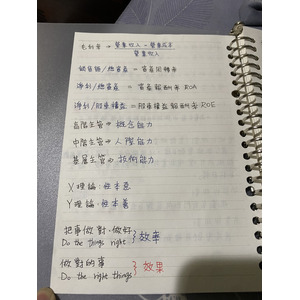 毛利率 → 營業收入 - 營業成本
營業收入
銷售額/總資產 = 資產週轉率
淨利/總資產 = 資產報酬率 ROA
淨利/股東權益 = 股東權益報酬率 ROE
高階主管 → 概念能力
中階主管 → 人際能力
基層主管 → 技術能力
X理論：性本惡
Y理論：性本善
把事做對、做好
Do the things right } 效率
做對的事
Do the right things } 效果